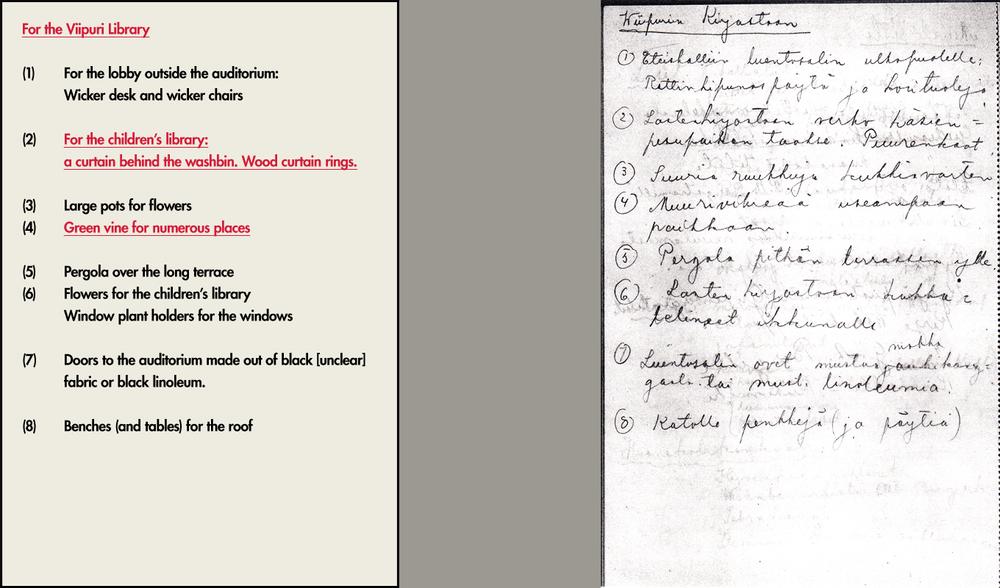 For the Viipuri Library
(1) For the lobby outside the auditorium:
Wicker desk and wicker chairs
(2) For the children's library:
a curtain behind the washbin. Wood curtain rings.
(3) Large pots for flowers
(4) Green vine for numerous places
(5) Pergola over the long terrace
(6) Flowers for the children's library
Window plant holders for the windows
(7) Doors to the auditorium made out of black [unclear]
fabric or black linoleum.
(8) Benches (and tables) for the roof
Wiipurin Kirjastoon
1 Eteishalliin luentosalin ulkopuolelle:
pöytä ja
2 Lastenkirjastoon verho käsien=
pesupaikan taakse. Puurenkaat
3 Suuria ruukkuja kukkia varten
4 Muurivihreää useampaan
paikkaan.
5 Pergola pitkän terrassin ylle
6 Lasten kirjastoon kukkia
telineet ikkunalle
7 Luentosalin ovet mustas
tai must. linoleumia.
8 Katolle penkkejä (ja pöytiä)